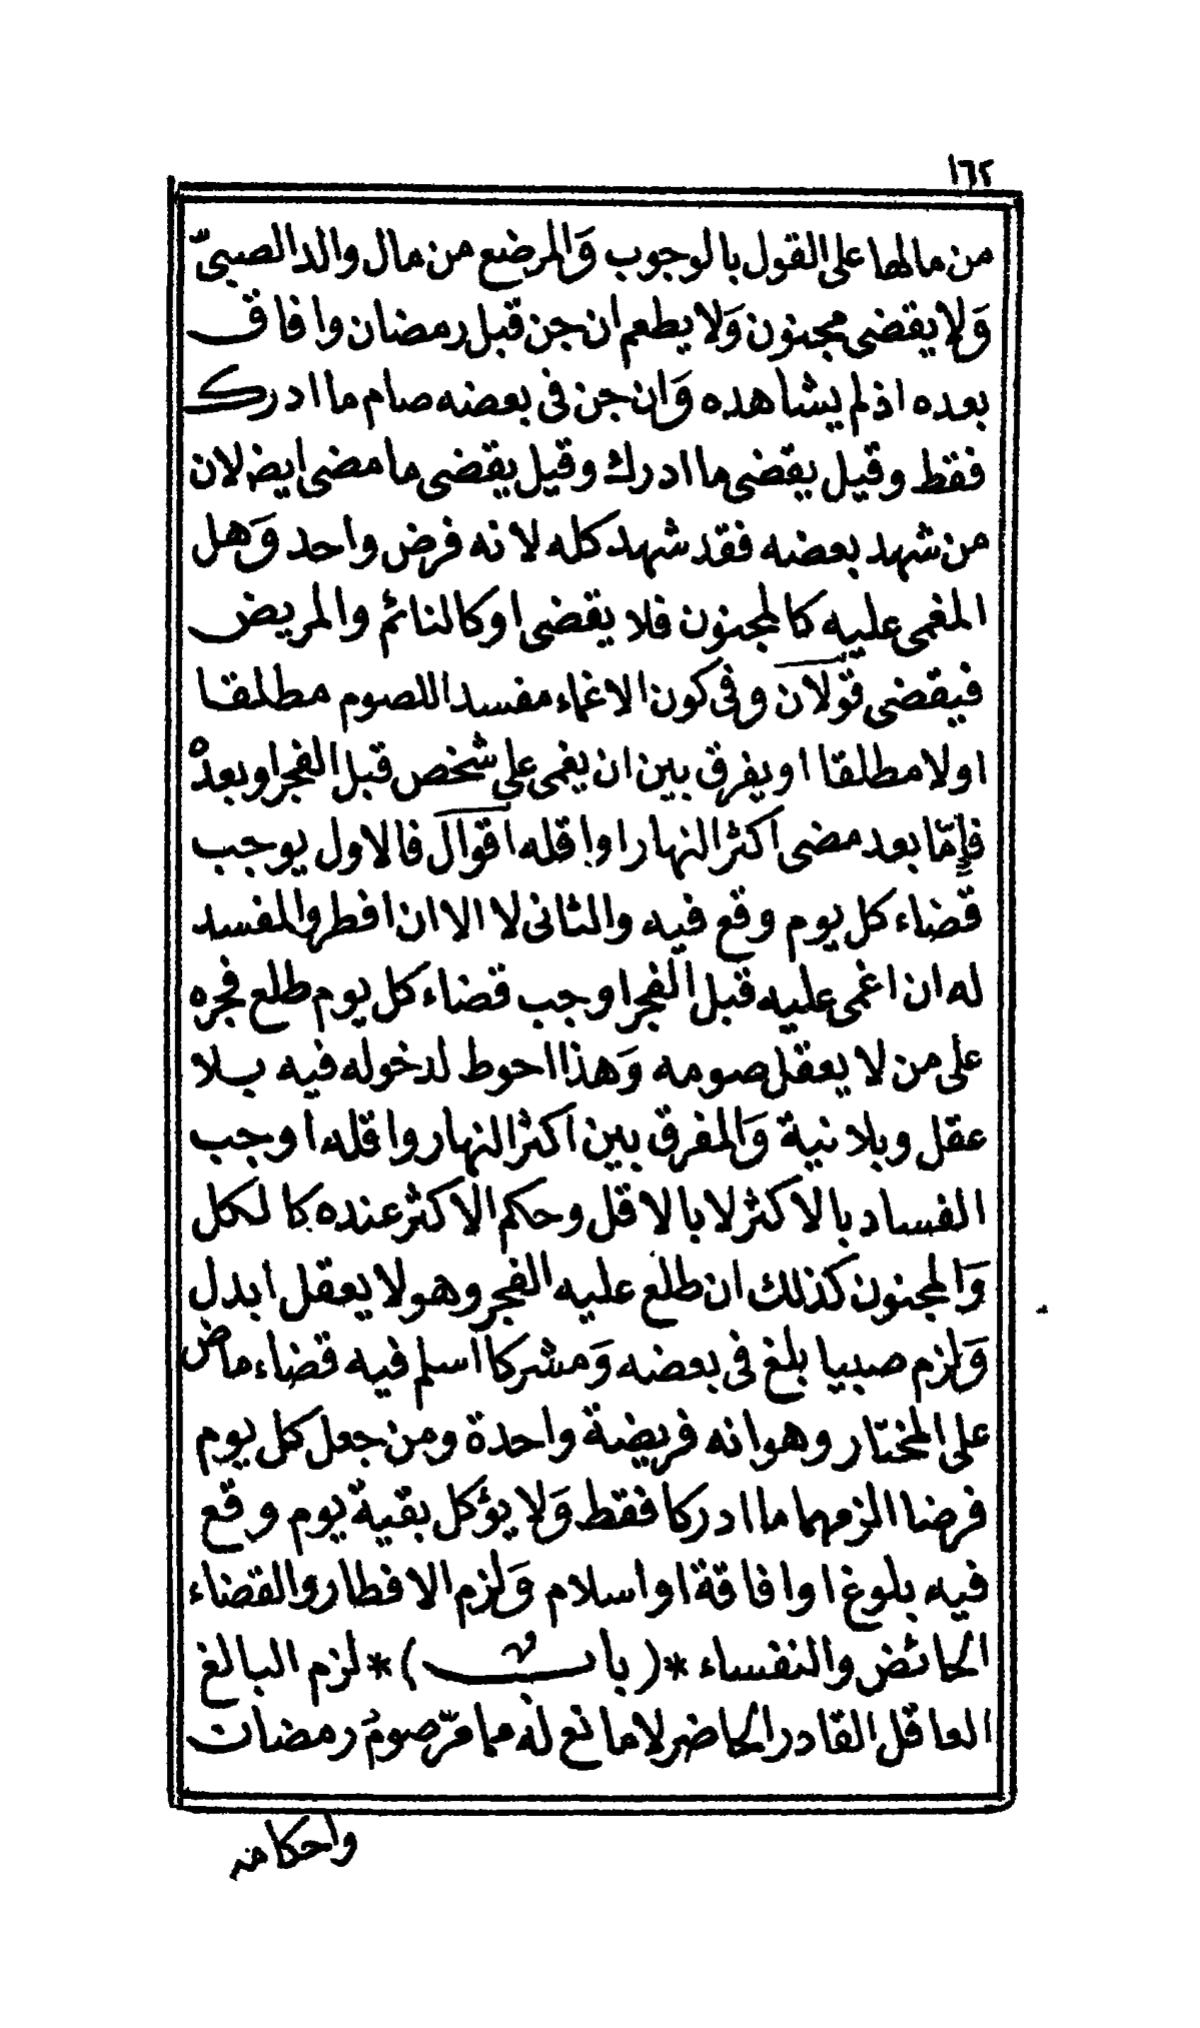 ١٦٢
من مالها على القول بالوجوب وَالمرضع من مال والد الصبىّ
وَلا يقضى مجنون وَلا يطعم ان جن قبل رمضان وافاق
بعده اذ لم يشاهده وَان جن فى بعضه صام ما ادرك
فقط وقيل يقضى ما ادرك وقيل يقضى ما مضى ايضا لان
من شهد بعضه فقد شهد كله لانه فرض واحد وَهل
المغمى عليه كالمجنون فلا يقضى او كالنائم والمريض
فيقضى قولان وفى كون الاغماء مفسدا للصوم مطلقا
او لا مطلقا او يفرق بين ان يغمى على شخص قبل الفجر او بعده
فإمّا بعد مضى اكثر النهار او اقله اقوال فالاول يوجب
قضاء كل يوم وقع فيه والثانى لا الا ان افطر والمفسد
له ان اغمى عليه قبل الفجر اوجب قضاء كل يوم طلع فجره
على من لا يعقل صومه وَهذا احوط لدخوله فيه بلا
عقل وبلا نية وَالمفرق بين اكثر النهار واقله اوجب
الفساد بالاكثر لا بالاقل وحكم الاكثر عنده كالكل
وَالمجنون كذلك ان طلع عليه الفجر وهو لا يعقل ابدل
وَلزم صبيا بلغ فى بعضه وَمشركا اسلم فيه قضاء ماض
على المختار وهو انه فريضة واحدة ومن جعل كل يوم
فرضا الزمهما ما ادركا فقط وَلا يؤكل بقية يوم وقع
فيه بلوغ او افاقة او اسلام وَلزم الافطار والقضاء
الحائض والنفساء *(باب)* لزم البالغ
العاقل القادر الحاضر لا مانع له مما مرّ صوم رمضان
واحكامه